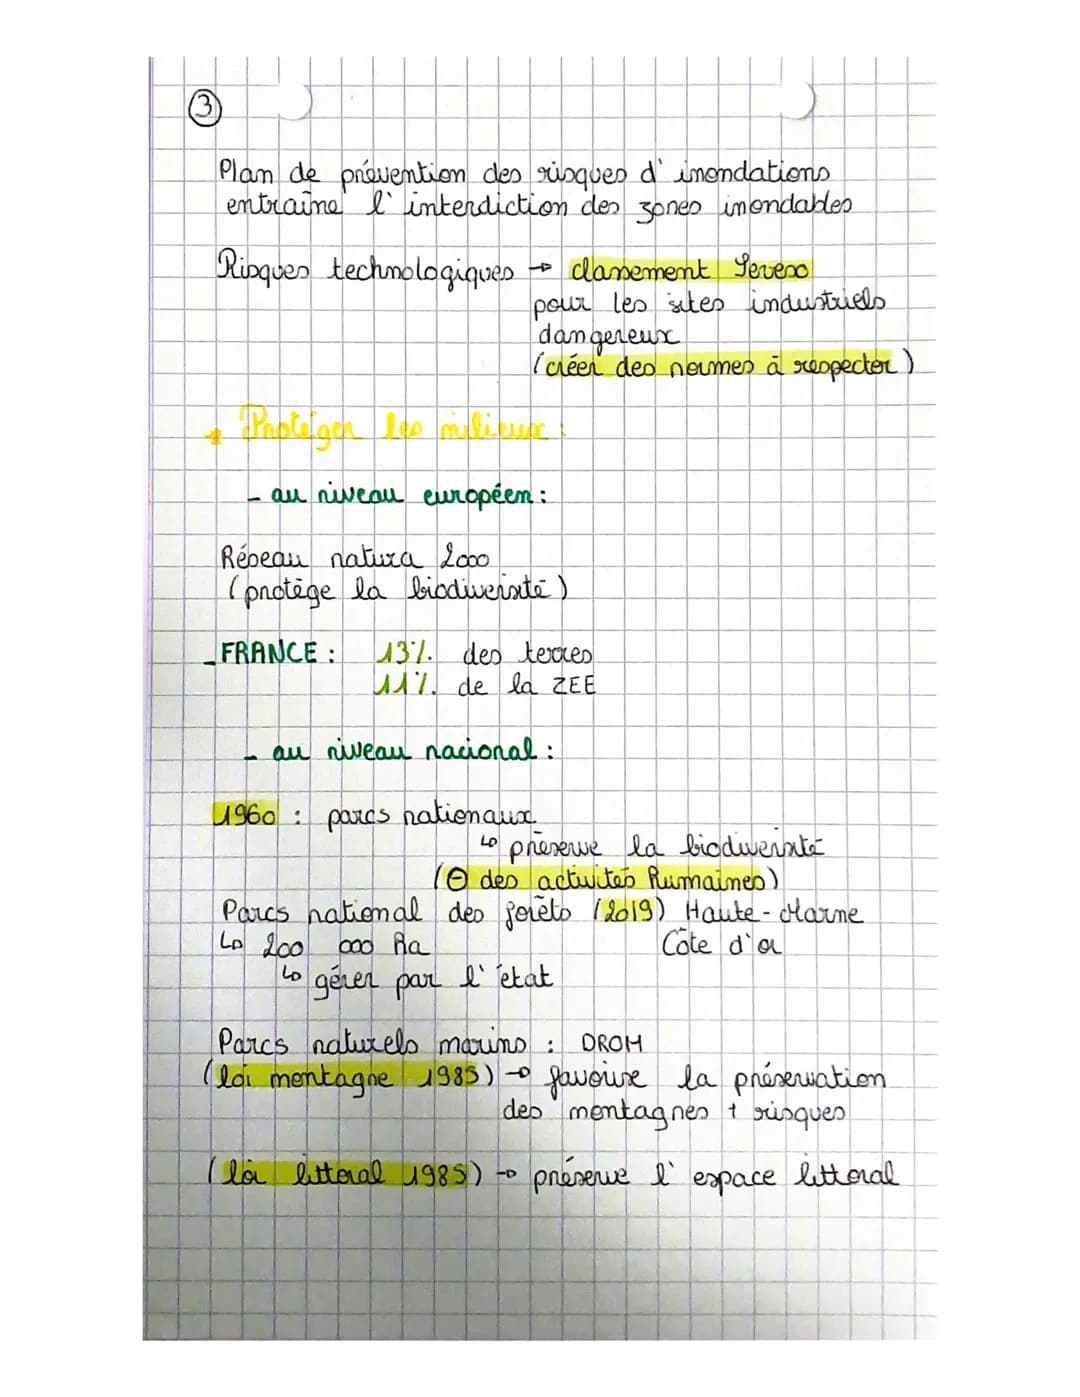 3
Plan de prévention des risques d'inondations
entraîne l'interdiction des zones inondables
Risques technologiques → classement Seveso
pour les sites industriels
dangereux
(créer des normes à respecter)
+ Protéger les milieux :
- au niveau européen :
Réseau natura 2000
(protège la biodiversité)
- FRANCE : 13% des terres
11% de la ZEE
- au niveau nacional :
1960 : parcs nationaux
↳ préserve la biodiversité
(⊖ des activités humaines)
Parcs national des forêts (2019) Haute-Marne
↳ 200 000 ha Côte d'or
↳ gérer par l'état
Parcs naturels marins : DROM
(loi montagne 1985) → favorise la préservation
des montagnes + risques
(loi littoral 1985) → préserve l'espace littoral